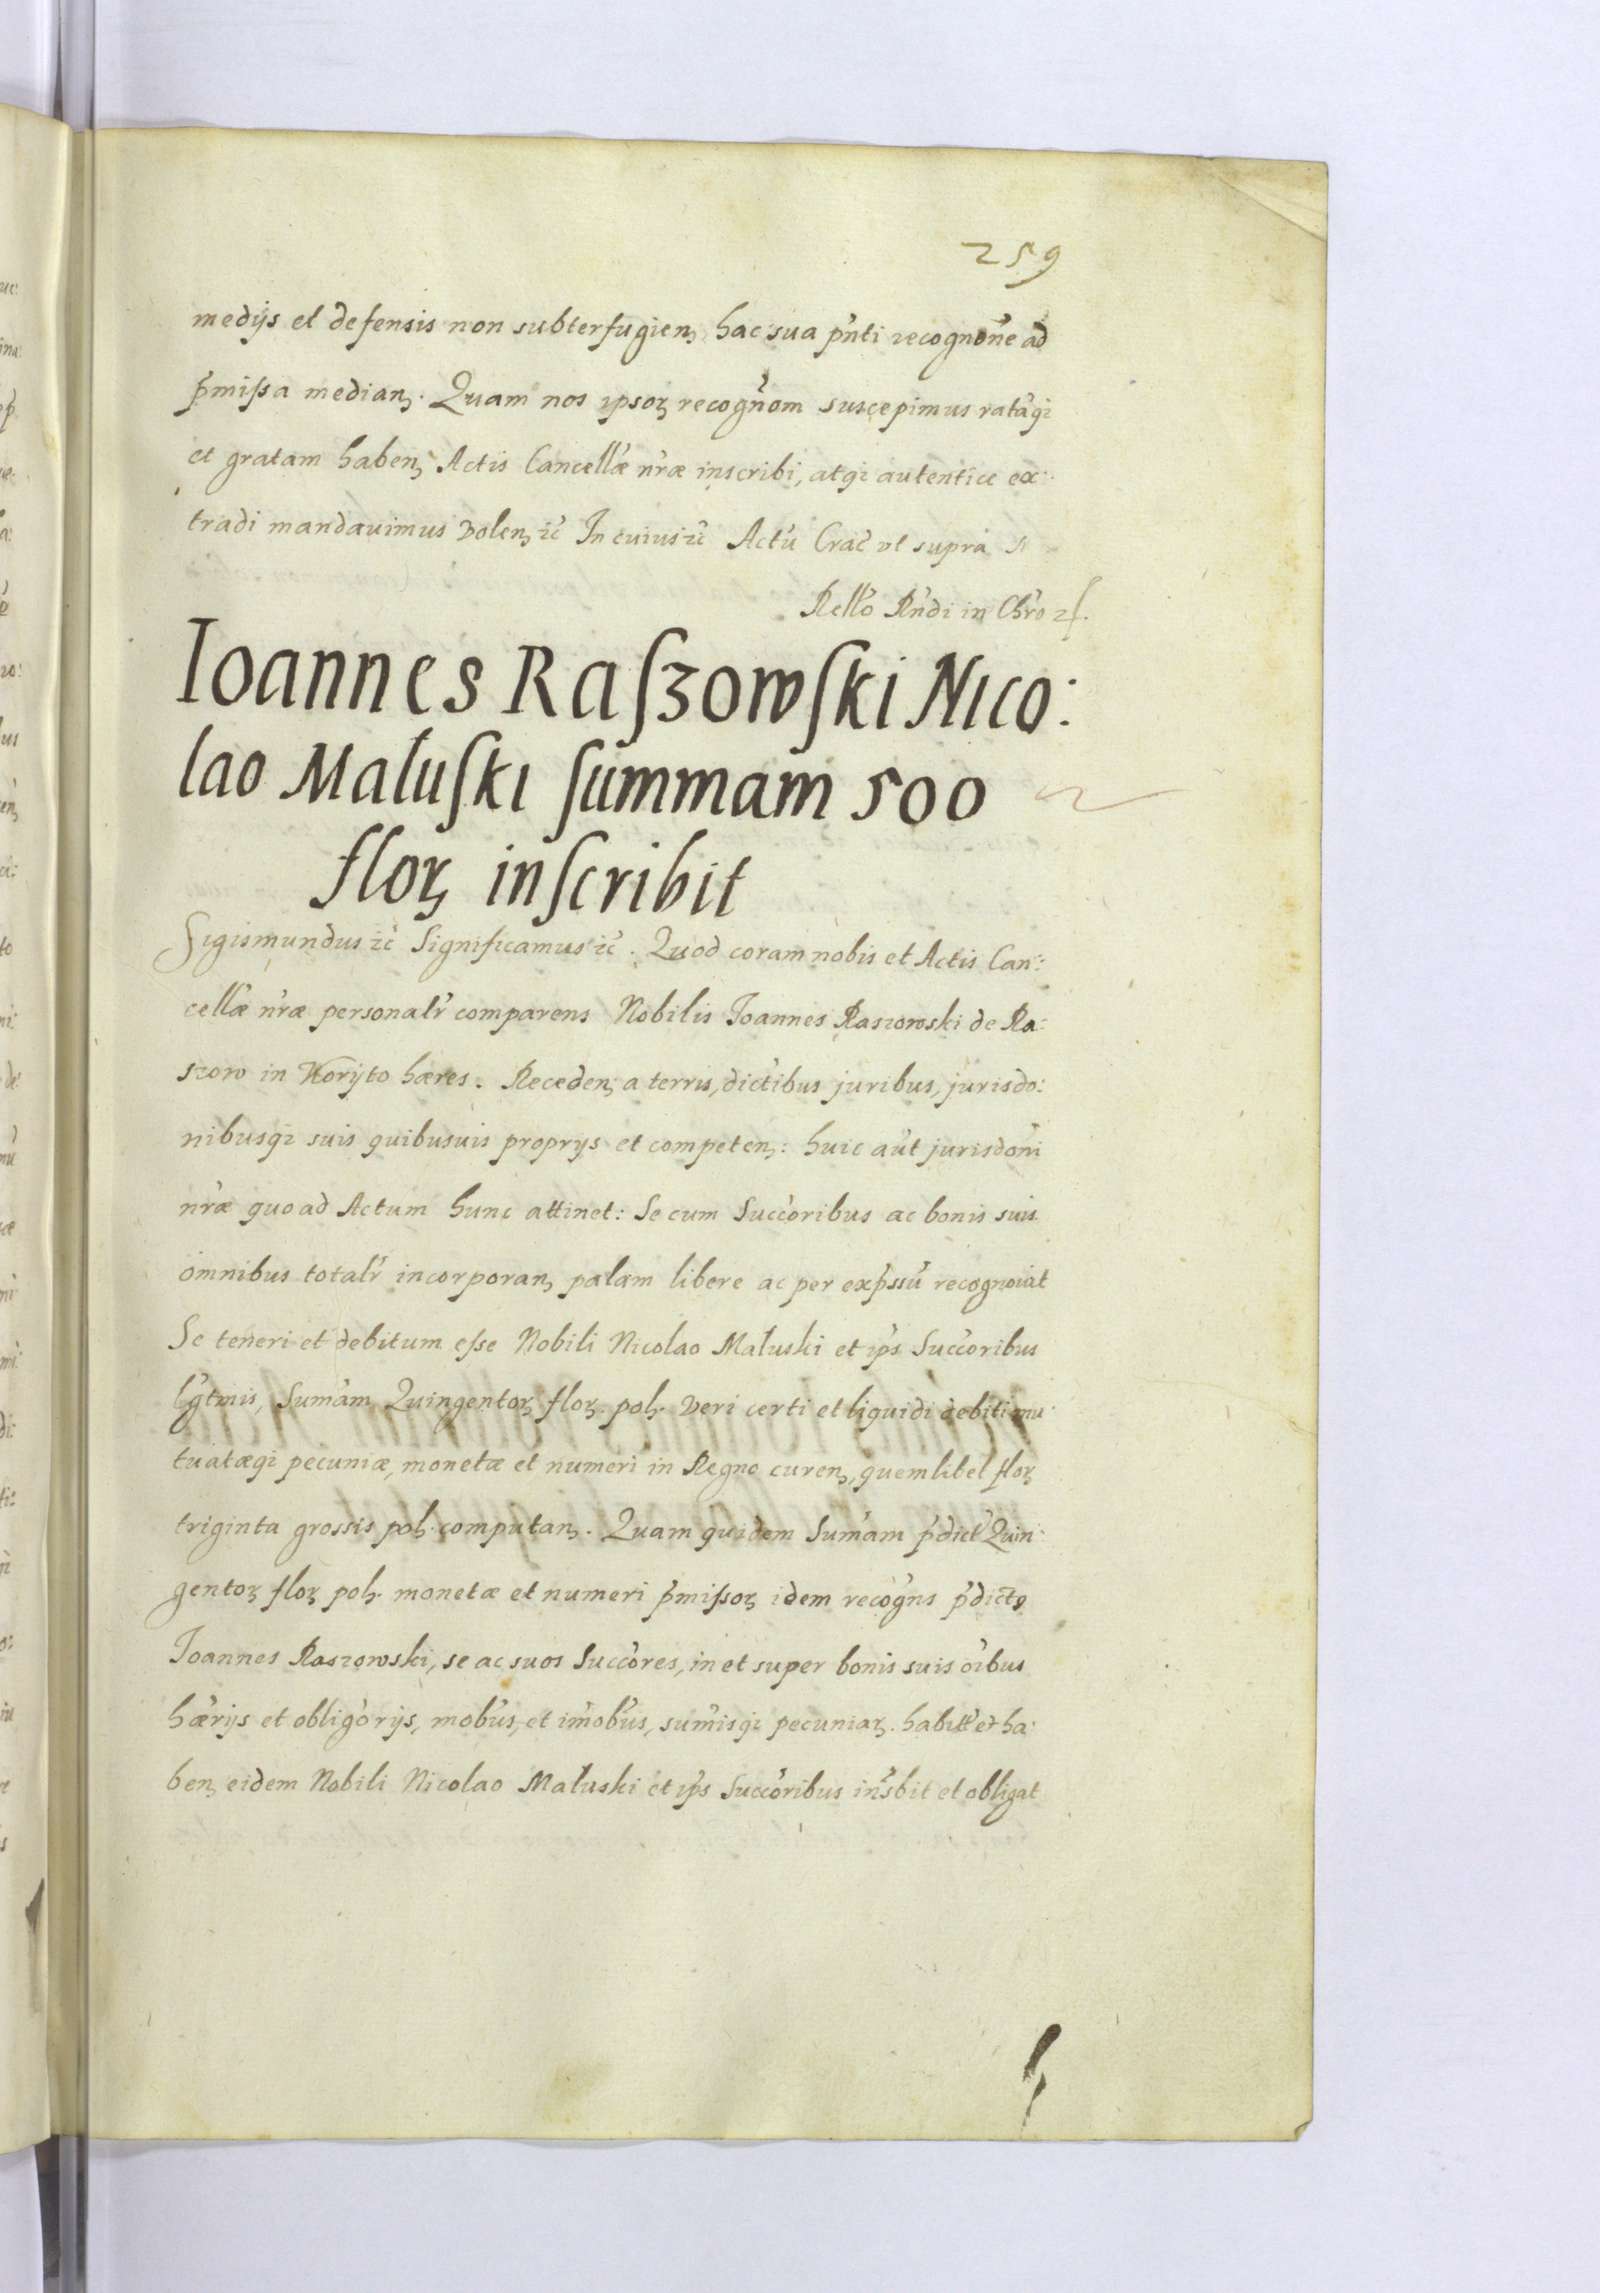 259
medijs et defensis non subterfugien, hac sua pñti recognoñe ad
p̃missa median. Quam nos ipsoꝝ recogñom suscepimus ratãqꝫ
et gratam haben, Actis Cancellæ nr̃æ inscribi, atqꝫ autentice ex:
tradi mandavimus volen, ꝛc̃ In cuius ꝛc̃ Actũ Crac̃ vt supra
Rello Rñdi in Chr̃o ꝛc.
Ioannes Raſzowſki Nico:
lao Maluſki ſummam 500
floꝝ inſcribit
Sigismundus ꝛc̃ Significamus ꝛc̃. Quod coram nobis et Actis Can:
cellæ nr̃æ personalr̃ comparens Nobilis Joannes Raszowski de Ra:
szow in Korÿto hæres. Receden, a terris, dictibus juribus, jurisdo:
nibusqꝫ suis quibusuis proprijs et competen: huic aũt jurisdoñi
nr̃æ quo ad Actum hunc attinet: Se cum Succ̃oribus ac bonis suis
omnibus totalr̃ incorporan, palam libere ac per exp̃ssũ recognovit
Se teneri et debitum esse Nobili Nicolao Maluski et ip̃s Succ̃oribus
lg̃tmis, Sum̃am Quingentoꝝ floꝝ. poł. veri certi et liquidi debiti mu:
tuatæqꝫ pecuniæ, monetæ et numeri in Regno curen, quemlibet floꝝ
triginta grossis poł. computan. Quam quidem Sum̃am p̃dict̃ Quin:
gentoꝝ floꝝ poł. monetæ et numeri p̃missoꝝ idem recog̃ns p̃dictꝯ
Joannes Raszowski, se ac suos Succ̃ores, in et super bonis suis oĩbus
hær̃ijs et oblig̃orijs, mob̃us, et im̃ob̃us, sum̃isqꝫ pecuniaꝝ. habitt̃ et ha:
ben, eidem Nobili Nicolao Maluski et ip̃s Succ̃oribus ins̃bit et obligat